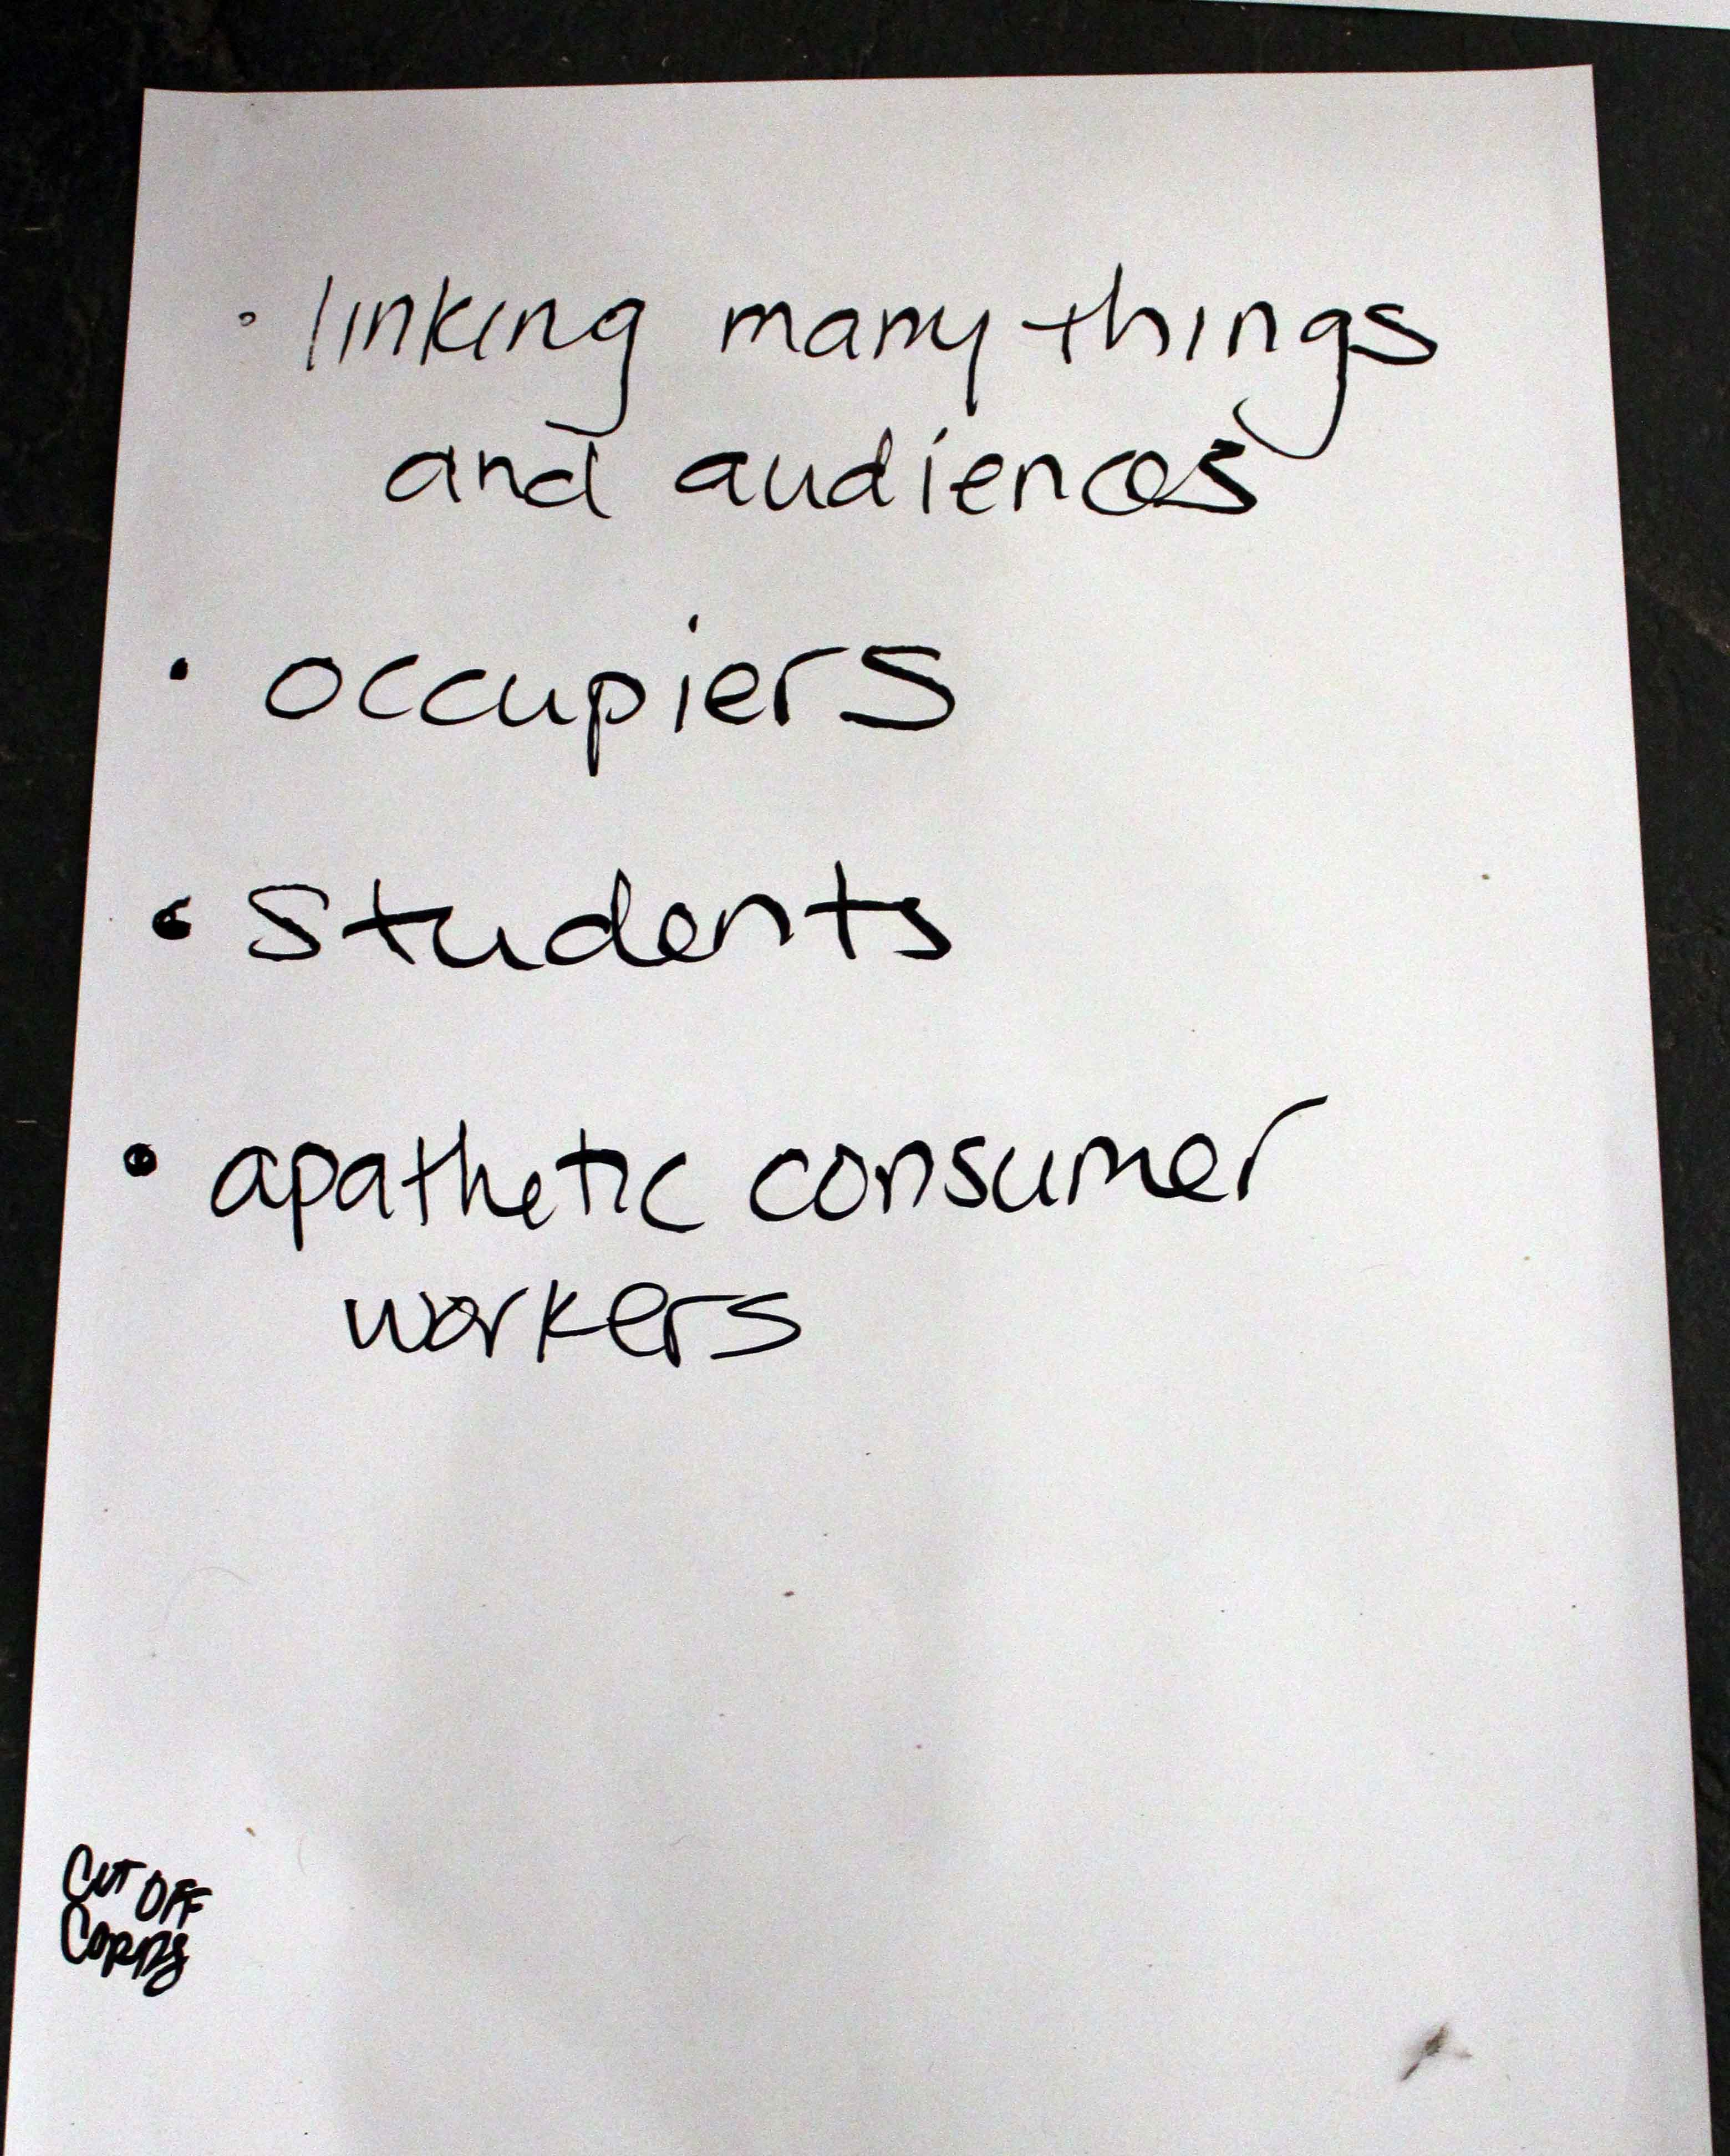 • linking many things
and audiences
• occupiers
• students
• apathetic consumer
workers
CUT OFF
CORPS